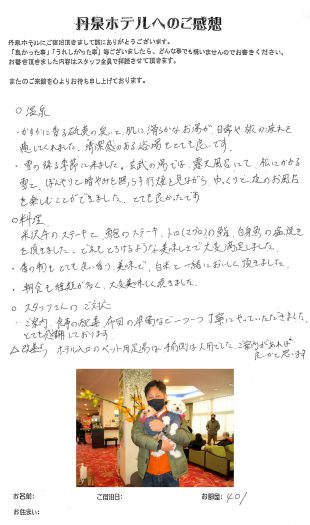 丹泉ホテルへのご感想
丹泉ホテルにご宿泊頂きまして誠にありがとうございます。
「良かった事」「うれしかった事」等ございましたら、どんな事でも構いませんのでお書きください。
お書き頂きました内容はスタッフ全員で拝読させて頂きます。
またのご来館を心よりお待ち申し上げております。
○温泉
・かすかに香る硫黄の臭いと、肌に滑らかなお湯が、日常や旅の疲れを
癒してくれました。清潔感のある浴場もとても良いです。
・雪の残る季節に来ました。玄武の湯では、露天風呂にて、松にかかる
雪と、ぼんやりと暗やみを照らす灯篭を見ながら、ゆっくりと夜のお風呂
を楽しむことができました。とても良かったです
○料理
・米沢牛のステーキと、鮑のステーキ、トロ(マグロ)の鮨、白身魚の塩焼き
を頂きました。どれもとろけるような美味しさで大変満足しました。
・香の物もとても良い香り、美味で、白米と一緒においしく頂きました。
・朝食も種類が多く、大変美味しく頂きました。
○スタッフさんのご対応
・ご案内、食事の配膳、布団の準備など一つ一つ丁寧にやっていただきました。
とても感謝しております。
△改善点 ホテル入口のペット用足湯は、
良いかと思います
お名前:
ご宿泊日:
お部屋: 401
お住まい: